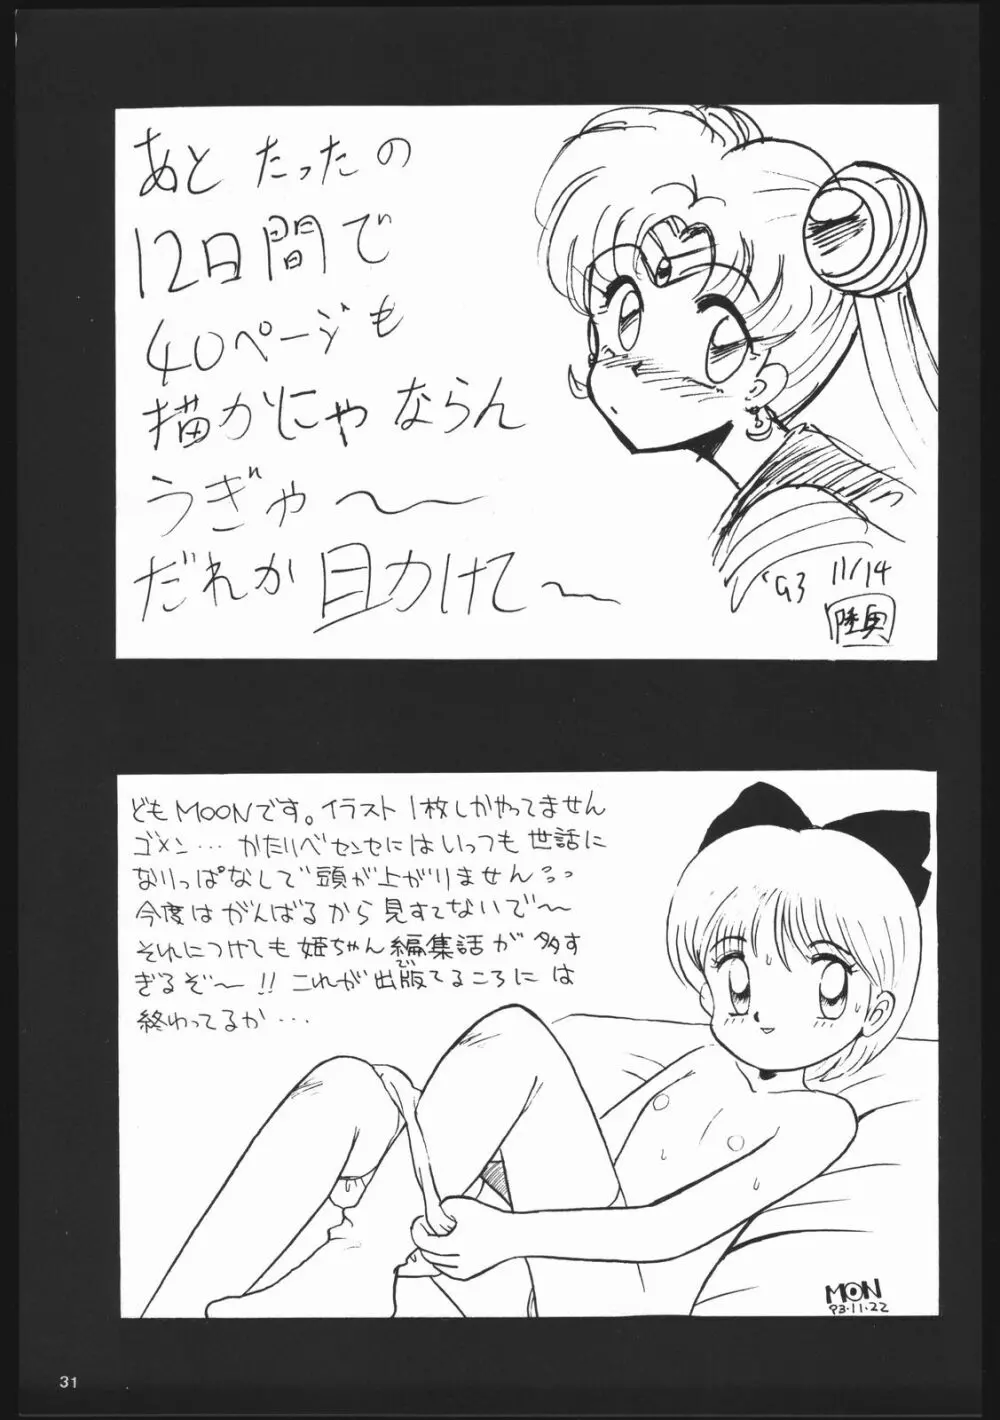 あと たったの
12日間で
40ページも
描かにゃならん
うぎゃ〜
だれか 助けて〜
'93 11/14
陸奥
どもMOONです。イラスト1枚しかやってません
ゴメン… かたりべセンセにはいつも世話に
なりっぱなしで頭が上がりません
今度はがんばるから見すてないで〜
それにつけても姫ちゃん編集話が多す
ぎるぞ〜!! これが出版でてるころには
終わってるか…
MOON
93.11.22
31